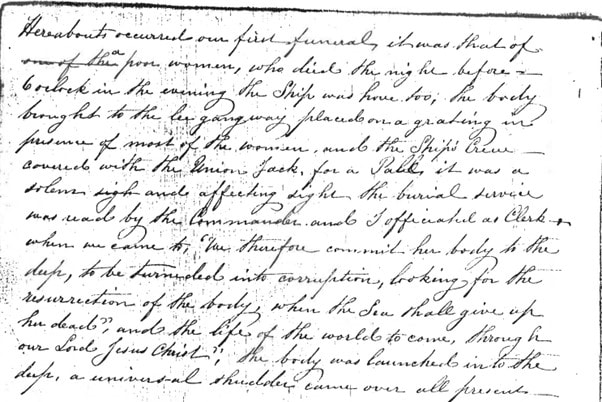 Hereabouts occurred our first funeral, it was that of
one of the a poor women, who died the night before –
6 oclock in the evening the Ship was hove too; the body
brought to the lee gangway placed on a grating in
presence of most of the women, and the Ship's Crew –
covered with the Union Jack, for a Pall, it was a
solem sigh and affecting sight the burial service
was read by the Commander and I officiated as Clerk –
when we came to, "We therefore commit her body to the
deep, to be turneded into corruption, looking for the
resurrection of the body, when the Sea shall give up
her dead", and the life of the world to come, through
our Lord Jesus Christ", the body was launched into the
deep, a universal shudder came over all present –